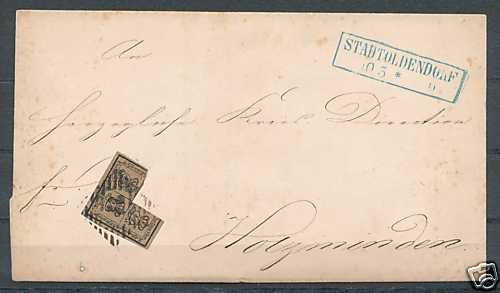 An
STADTOLDENDORF
Herzogliche Kreis Direction
Holzminden.